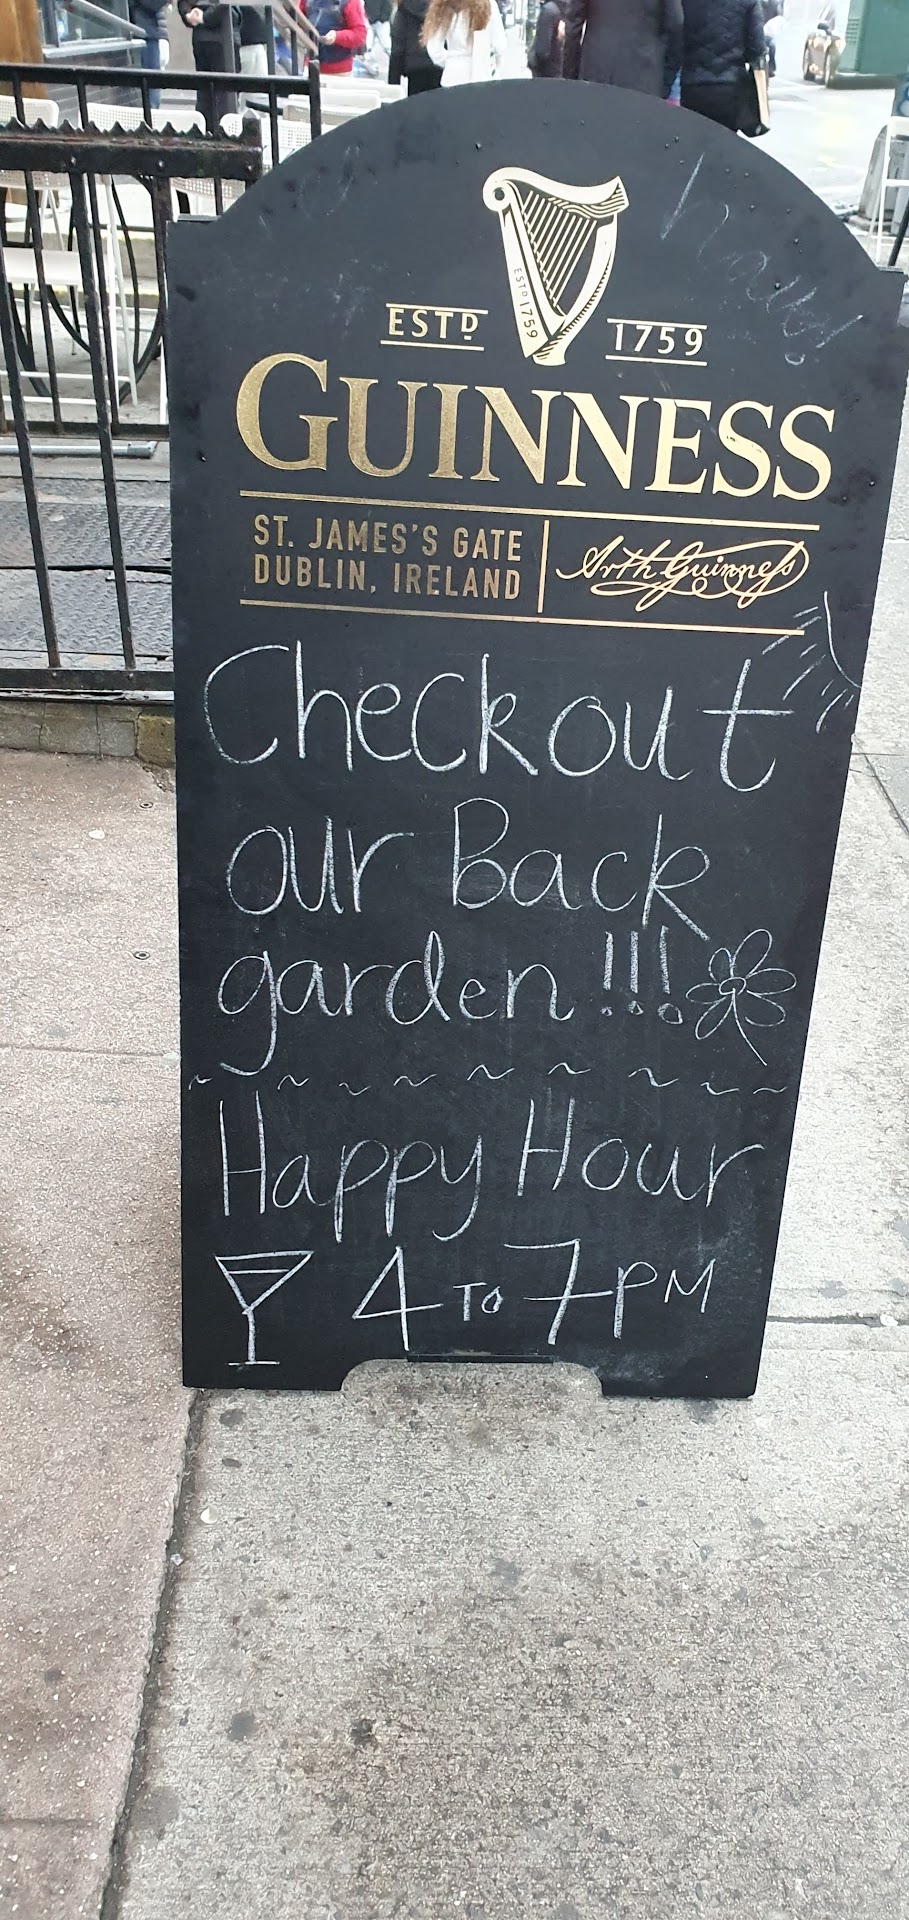 ESTD 1759
ESTD 1759
GUINNESS
ST. JAMES'S GATE
DUBLIN, IRELAND
Arth Guinness
Checkout
our Back
garden!!!
Happy Hour
4 TO 7PM